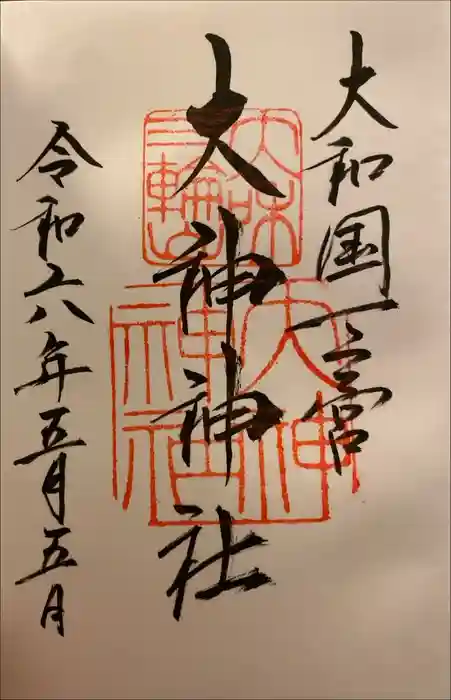 大和国一之宮
大神神社
令和六年五月五日
大和
三輪山
大神
神社